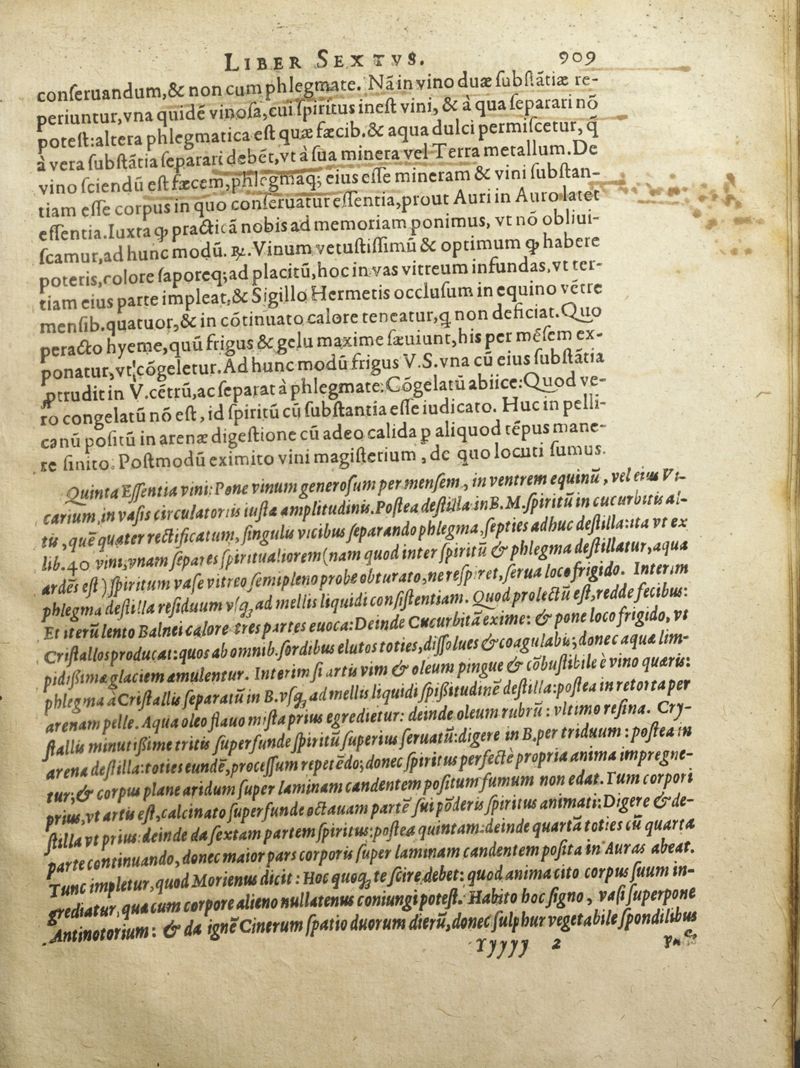 LIBER SEXTVS. 909
conſeruandum,& non cum phlegmate. Nã in vino duæ ſubſtãtiæ re-
periuntur,vna quidẽ vinoſa,cui ſpiritus ineſt vini, & à qua ſeparari nõ
poteſt:altera phlegmatica eſt quæ fæcib.& aqua dulci permiſcetur, q̃
à vera ſubſtãtia ſeparari debẽt,vt à ſua minera vel Terra metallum.De
vino ſciendũ eſt fæcem,phlegmaq; eius eſſe mineram & vini ſubſtan-
tiam eſſe corpus in quo conſeruatur eſſentia,prout Auri in Auro latet
eſſentia.Iuxta ꝙ practicã nobis ad memoriam ponimus, vt nõ obliui-
ſcamur,ad hunc modũ. ℞.Vinum vetuſtiſſimũ & optimum ꝙ habere
poteris,colore ſaporeq;ad placitũ,hoc in vas vitreum infundas,vt ter-
tiam eius partẽ impleat,& Sigillo Hermetis occluſum in equino vẽtre
menſib.quatuor,& in cõtinuato calore teneatur,q non deficiat.Quo
peracto hyeme,quũ frigus & gelu maxime ſæuiunt,his per mẽſem ex-
ponatur,vt cõgeletur.Ad hunc modũ frigus V.S.vna cũ eius ſubſtãtia
ꝓtrudit in V.cẽtrũ,ac ſeparat à phlegmate:Cõgelatũ abiice:Quod ve-
ro congelatũ nõ eſt, id ſpiritũ cũ ſubſtantia eſſe iudicato. Huc in pelli-
canũ poſitũ in arenæ digeſtione cũ adeo calida p aliquod tẽpus mane-
re ſinito. Poſtmodũ eximito vini magiſterium , de quo locuti ſumus.
Quinta Eſſentia vini: Pone vinum generoſum per menſem , in ventrem equinũ , vel eius Vi-
carium,in vaſis circulatoriis iuſta amplitudinis.Poſtea deſtilla in B.M.ſpiritũ in cucurbitis al-
tis , quẽ quater rectificatum, ſingulis vicibus ſeparando phlegma.ſepties adhuc deſtilla:ita vt ex
lib.40 vini,vnam ſepares ſpiritualiorem(nam quod inter ſpiritũ & phlegma deſtillatur,aqua
ardẽs eſt) ſpiritum vaſe vitreo ſemipleno probe obturato,ne reſpiret,ſerua loco frigido. Interim
phlegma deſtilla reſiduum vſq; ad mellis liquidi conſiſtentiam. Quod prolectũ eſt,redde fecibus:
Et iterũ lento Balnei calore tres partes euoca:Deinde Cucurbitã exime: & pone loco frigido, vt
Criſtallos producat:quos ab omnib.ſordibus elutos toties,diſſolues & coagulabis;donec aqua lim-
pidiſſima glaciem amulentur. Interim ſi artis vim & oleum pingue & cõbuſtibile è vino quæris:
phlegma à Criſtallis ſeparatũ in B.vſq; ad mellis liquidi ſpiſſitudinẽ deſtilla:poſtea in retorta per
arenam pelle. Aqua oleo flauo miſta prius egredietur: deinde oleum rubrũ : vltimo reſina. Cry-
ſtallis minutiſſime tritis ſuperfunde ſpiritũ ſuperius ſeruatũ:digere in B.per triduum : poſtea in
arena deſtilla:toties eundẽ,proceſſum repetẽdo;donec ſpiritus perfectè propria anima impregne-
tur;& corpus plane aridum ſuper laminam candentem poſitum fumum non edat.Tum corpori
prius,vt artis eſt,calcinato ſuperfunde octauam partẽ ſui põderis ſpiritus animati:Digere & de-
ſtilla vt prius:deinde da ſextam partem ſpiritus:poſtea quintam:deinde quartã toties cũ quarta
parte continuando, donec maior pars corporis ſuper laminam candentem poſita in Auras abeat.
Tunc impletur,quod Morienus dicit : Hoc quoq; te ſcire debet: quod anima cito corpus ſuum in-
grediatur,qua cum corpore alieno nullatenus coniungi poteſt. Habito hoc ſigno , vaſi ſuperpone
Antinotorium: & da ignẽ Cinerum ſpatio duorum dierũ,donec ſulphur vegetabile ſpondilibus
Yyyyy 2